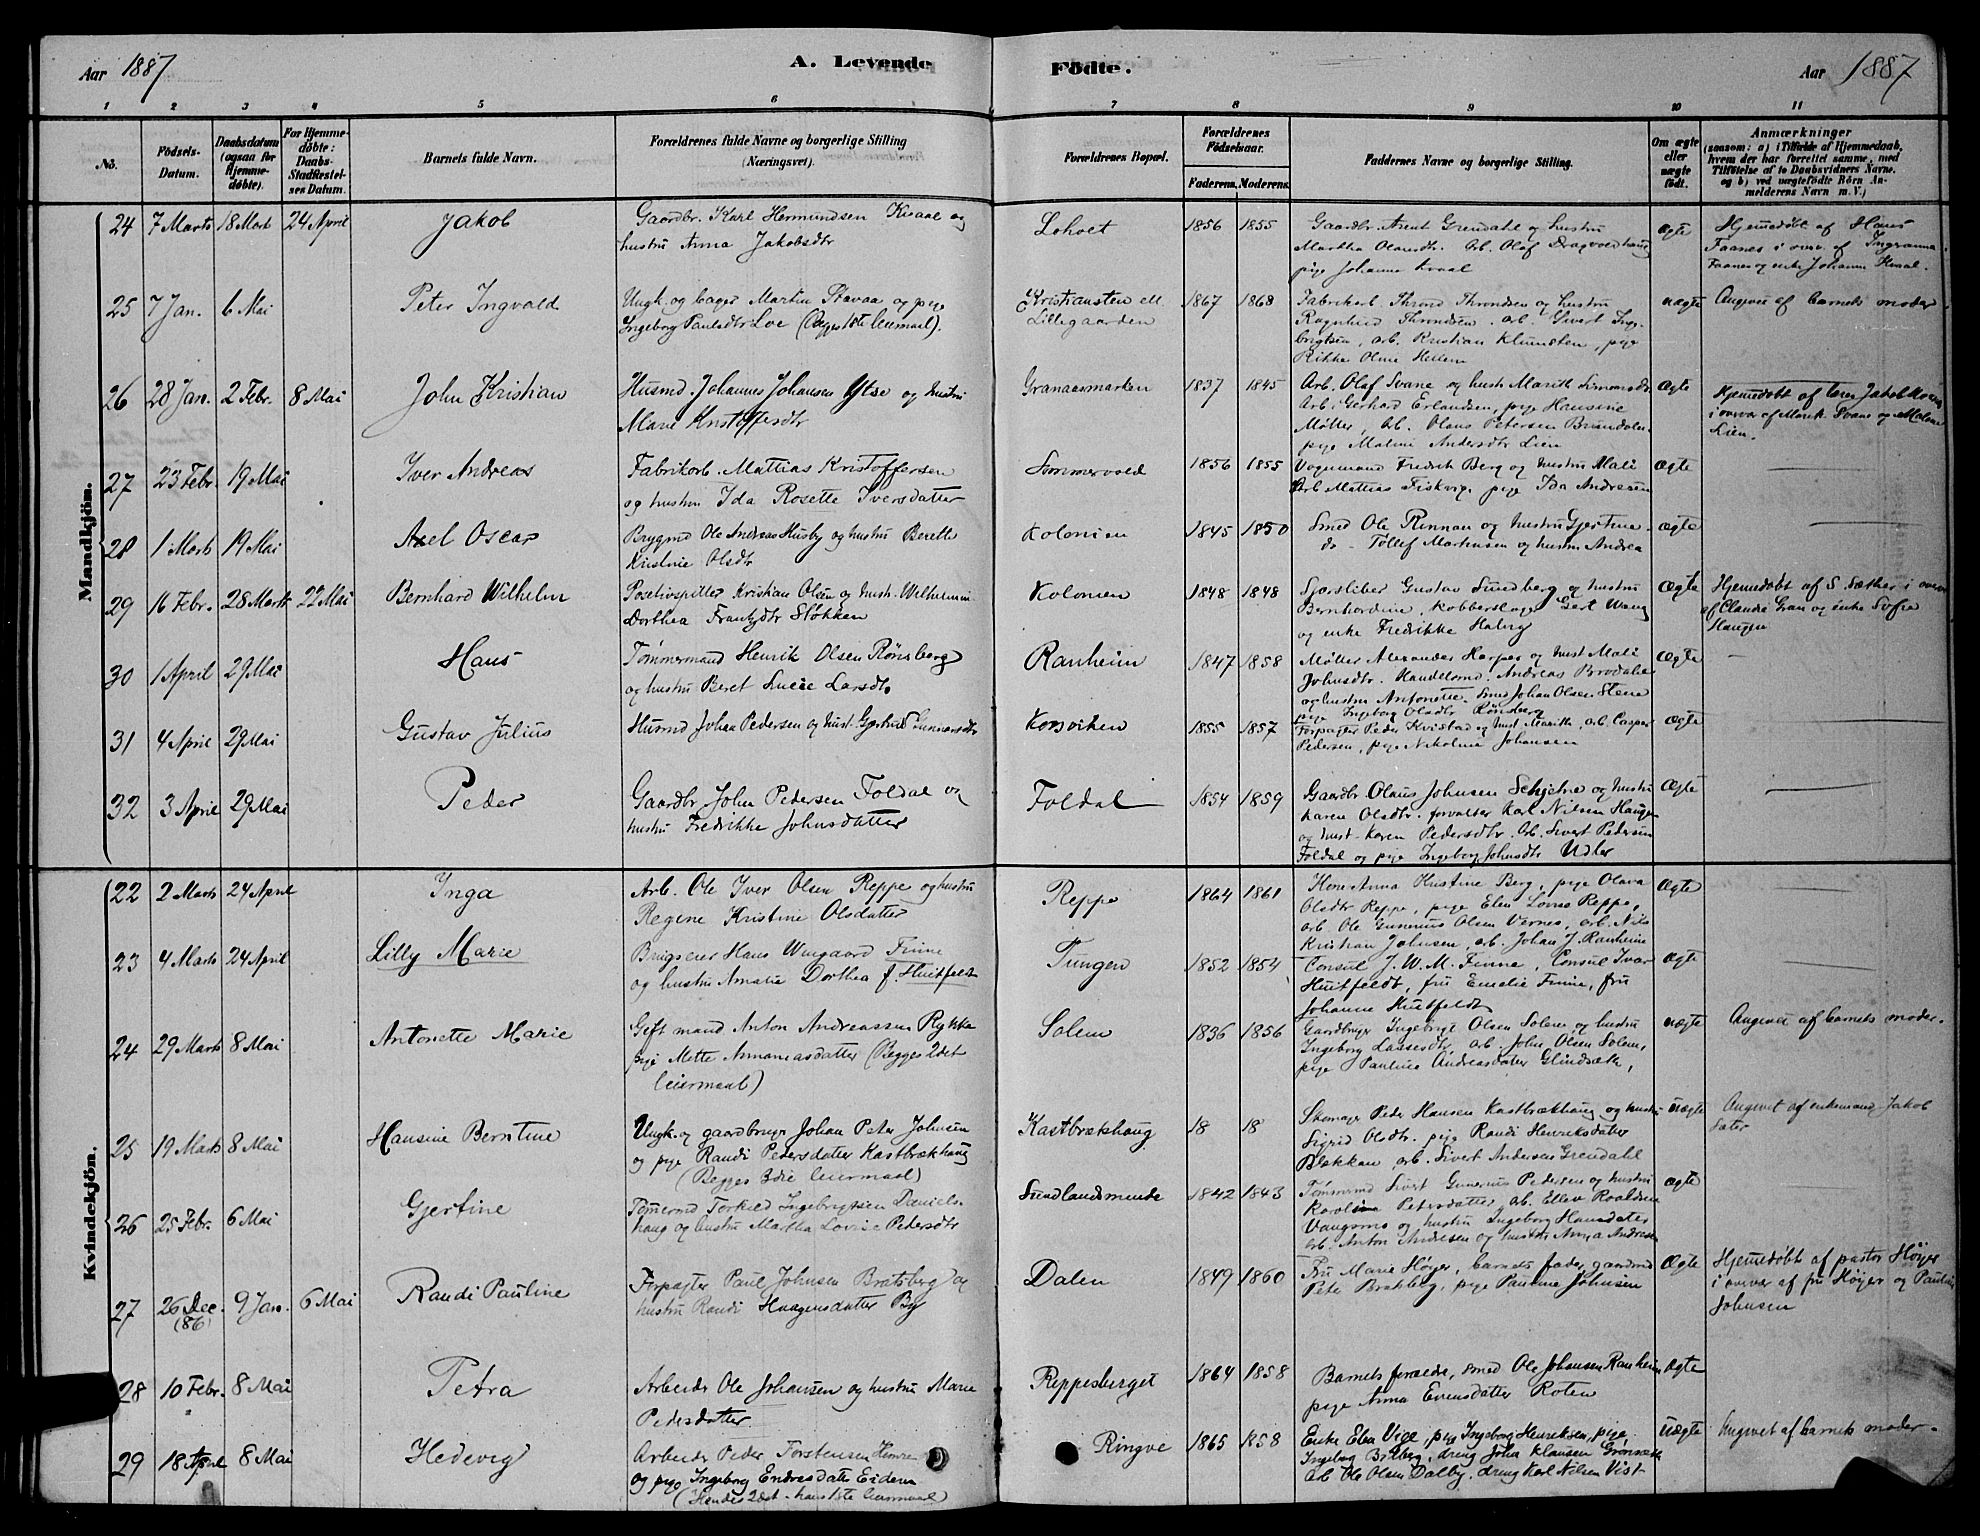 Aar 1887 A. Levende Födte. Aar 1887
1 2 3 4 5 6 7 8 9 10 11
No. Födsels-Datum. Daabsdatum (ogsaa for Hjemme-döbte). For Hjemme-döbte: Daabs-Stadfæstelses Datum. Barnets fulde Navn. Forældrenes fulde Navne og borgerlige Stilling (Næringsvei). Forældrenes Bopæl. Forældrenes Födselsaar. Faderens. Moderens. Faddernes Navne og borgerlige Stilling. Om ægte eller uægte födt. Anmærkninger (saasom: a) i Tilfælde af Hjemmedaab, hvem der har forrettet samme, med Tilföielse af to Daabsvidners Navne, og b) ved uægtefödte Börn Anmelderens Navn m. V.)
Mandkjön.
24 7 Marts 18 Mart 24 April Jakob Gaardbr. Karl Hermundsen Kvaal og Loholt 1856 1855 Gaardbr. Arent Grendahl og hustru Ægte Hjemedøbt af Hans
hustru Anna Jakobsdtr Martha Olausdtr. Arb. Olaf Dragvoldhaug Faanes i overv. af
pige Johanna Kvaal Faanes og enke Johanna Kvaal.
25 7 Jan. 6 Mai Peter Ingvald Ungk. og bager Martin Stavaa og pige Kristiansten ell. 1867 1868 Fabrikarb. Thrond Throndsen og hustru uægte Angivet af barnets moder
Ingeborg Paulsdtr Loe (Begges 1ste leiermaal). Lillegaarden Ragnhild Throndsen. arb. Sivert Inge-
brigtsen, arb. Kristian Klumsten, pige
Rikke Oline Hellem
26 28 Jan. 2 Febr. 8 Mai John Kristian Husmd. Johannes Johansen Ytse og hustru Granaasmarken 1837 1845 Arb. Olaf Svane og hust. Marith Simonsdr Ægte Hjemedøbt af Jakob
Mari Kristoffersdtr Arb. Gerhard Erlandsen, pige Hansine i overv. af Marek Svane og Malene
Møller, arb. Olaus Petersen Brundalen Lien.
pige Malene Andersdtr Lien
27 23 Febr. 19 Mai Iver Andreas Fabrikarb. Mattias Kristoffersen 1856 1855 Vognmand Fredrik Berg og hustru Mali Ægte
og hustru Ida Rosette Iversdatter Arb Mattias Fiskvig, pige Ida Andresen
28 1 Marts 19 Mai Axel Oscar Brygmd Ole Andreas Husby og hustru Berette Kolonien 1845 1850 Smed Ole Rinnan og hustru Gjertine Ægte
Kristine Olsdtr do - Tollef Martinsen og hustru Andrea
29 16 Febr. 28 Marts 22 Mai Bernhard Wilhelm Positivspiller Kristian Olsen og hust. Wilhelmine Kolonien 1848 1848 Gustav Sundberg og hustru Ægte Hjemedøbt af S. Sæther i overv
Dorthea Frantzdtr Støkken Bernhardine, Kobberslager Gert Wang af Claudie Gran og enke Sofie
og enke Fredrikke Haberg Haugen
30 1 April 29 Mai Hans Tømmermand Henrik Olsen Rønsberg Ranheim 1847 1858 Møller Alexander Harper og hust Mali Ægte
og hustru Beret Lucie Larsdtr Johnsdtr. Handelsmd. Andreas Brodalie
og hustru Antonette. Smed Johan Olsen Stene
pige Ingeborg Olsdtr Rønsberg
31 4 April 29 Mai Gustav Julius Husmd Johan Pedersen og hust. Gjertrud Gunnarsdtr Korsviken 1855 1857 Forpagter Peder Kvistad og hust Marith, arb. Casper Ægte
Pedersen, pige Nikoline Johansen
32 3 April 29 Mai Peder Gaardbr John Pedersen Foldal og Foldal 1854 1859 Gaardbr. Olaus Johnsen Schjelve og hustru Ægte
hustru Fredrikke Johnsdatter Karen Olsdtr. forvalter Karl Nilsen Haugen
og hust. Karen Pedersdtr. Arb. Sivert Pedersen
Foldal og pige Ingeborg Johnsdtr Udler
Kvindekjön.
22 2 Marts 24 April Inga Arb. Ole Iver Olsen Reppe og hustru Reppe 1864 1861 Kone Anna Kristine Berg, pige Olava Ægte
Regine Kristine Olsdatter Olsdtr Reppe, pige Elen Reppe,
arb Ole Gunerius Olsen Vernes, arb. Nils
Kristian Johnsen, arb. Johan J. Ranheim
23 4 Marts 24 April Lilly Marie Brugseier Hans Wingaard Finne Tungen 1852 1854 Consul J. W. M. Finne, Consul Ivar Ægte
og hustru Amalie Dorthea f. Huitfeldt Huitfeldt, fru Emelie Finne, fru
Johanne Huitfeldt
24 29 Marts 8 Mai Antonette Marie Gift mand Anton Andreassen Rykke Solem 1836 1856 Gaardbruger Ingebrigt Olsen Solem og hustru uægte Angivet af barnets moder.
pige Mette Annaniasdatter (Begges 2det Ingeborg Lassesdtr arb. John Olsen Solem,
leiermaal) pige Pauline Andreasdatter Glindsæth,
25 19 Marts 8 Mai Hansine Berntine Ungk. og gaardbruger Johan Peter Johnsen Kastbrækhaug 18 18 Skomager Peder Hansen Kastbrækhaug og hustru uægte Angivet af enkemand Jakob
og pige Randi Pedersdatter Kastbrækhaug Sigrid Olsdtr. pige Randi Henriksdatter Sæter
(Begges 3die leiermaal) Blekkan arb. Sivert Andersen Grendahl
26 25 Febr. 6 Mai Gjertine Tømermd Torkild Ingebrigtsen Daniels- Sundlandsminde 1842 1843 Tømmermd Sivert Gunerius Pedersen og hustru Ægte
haug og hustru Martha Lovise Pedersdtr Karoline Petersdatter, arb. Ellev Roaldsen
Vangsmo og hustru Ingeborg Hansdatter
arb. Anton Andresen og hustru Anna Andresen
27 26 Dec. (86) 9 Jan. 6 Mai Randi Pauline Forpagter Paul Johnsen Bratsberg og Dalen 1849 1860 Fru Marie Høyer, barnets fader, gaardmd Ægte Hjemedøbt af pastor Høyer
hustru Randi Haagensdatter By Peter Bratsberg, pige Pauline Johnsen i overv. af fru Høyer og Pauline
Johnsen
28 10 Febr. 8 Mai Petra Arbeider Ole Johansen og hustru Marie Reppesberget 1864 1858 Barnets foræld, smed Ole Johansen Ranheim Ægte
Pedersdatter pige Anna Evensdatter Roten
29 18 April 8 Mai Hedevig Arbeider Peder Torstensen Ringve 1865 1858 Enke Elen Vige, pige Ingeborg Henriksen, pige Uægte Angivet af barnets moder.
og pige Ingeborg Endresdatter Eidem Ingeborg Bilberg, dreng Johan Klausen
(Hendes 2det - hans 1ste leiermaal) arb Ole Olsen Dalby, dreng Karl Nilsen Vist